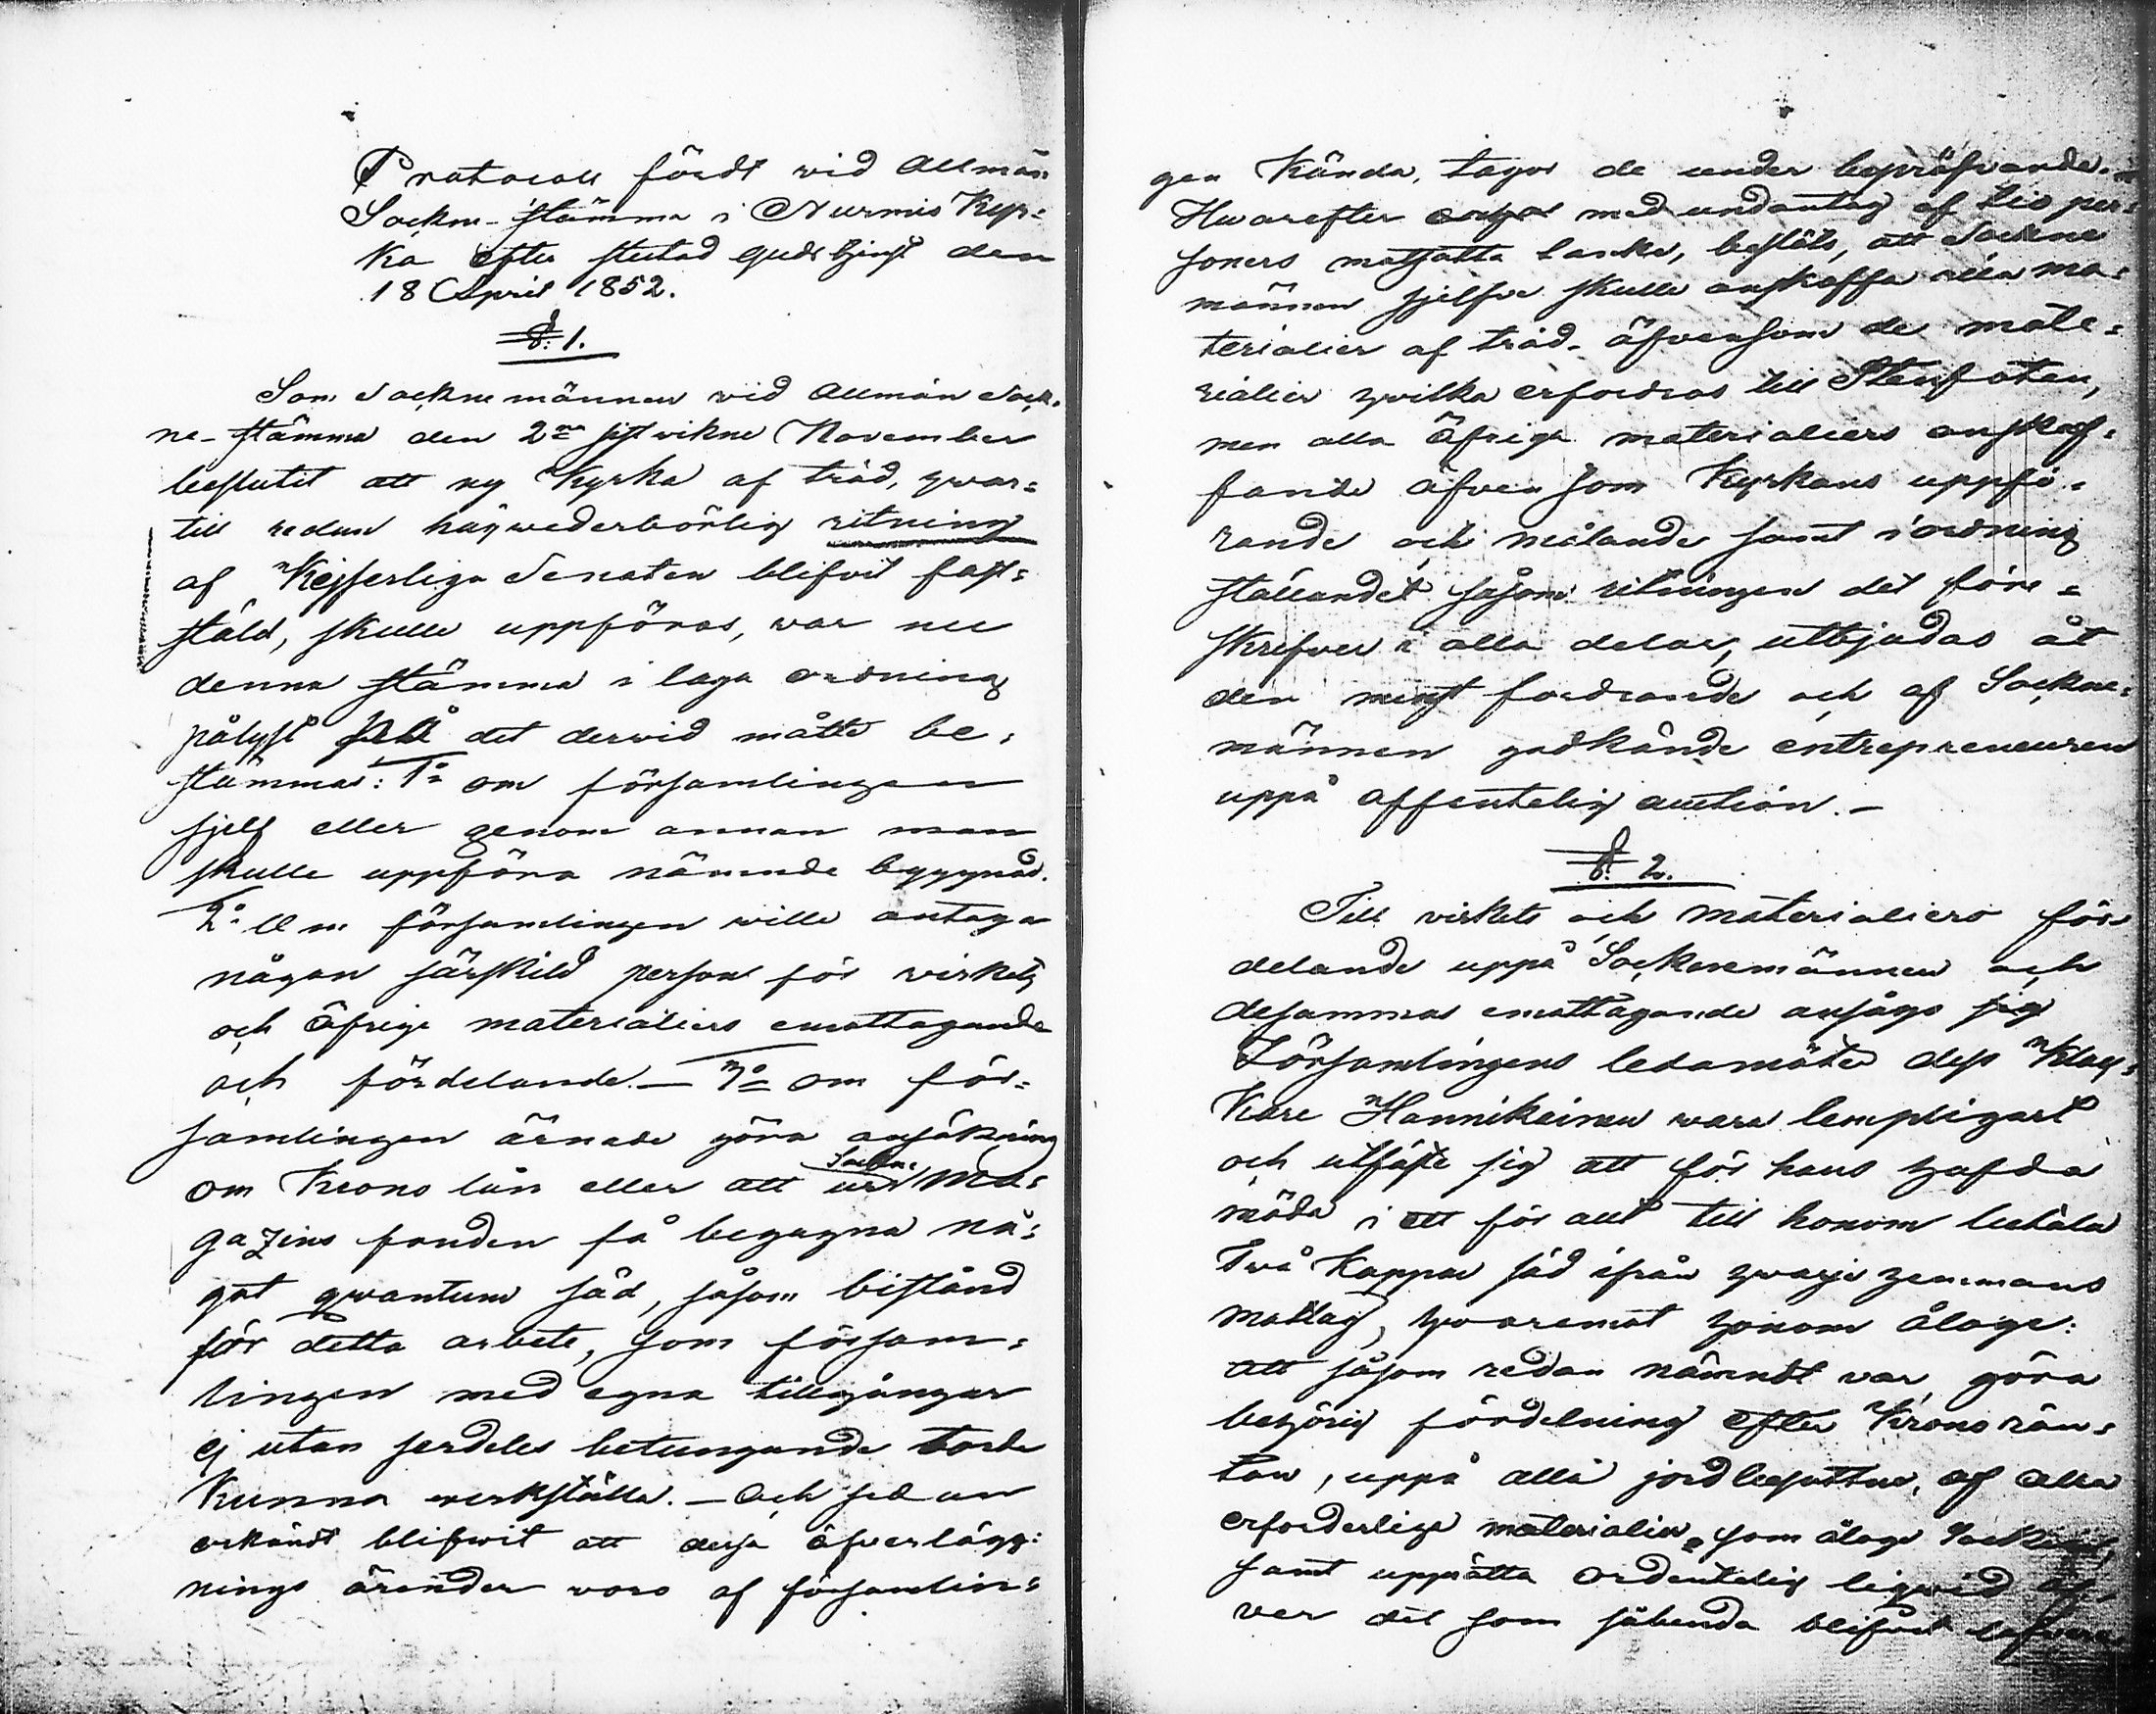 Protocoll fördt wid Allmän
Sockne-stämma i Nurmis Kyr-
ka efter slutad gudstjenst den
18 April 1852.
§. 1.
Som Socknemännen wid Allmän Sock-
ne-stämma den 2ra sistvikne November
beslutit att ny Kyrka af träd, hvar-
till redan högwederbörlig ritning
af Kejserliga Senaten blifvit fast-
stäld, skulle uppföras, war nu
denna stämma i laga ordning
pålyst på det dervid måtte be-
stämmas: 1o om församlingen
sjelf eller genom annan man
skulle uppföra nämnde byggnad.
2o Om församlingen wille antaga
någon särskild person för wirkets
och öfriga materialiers emottagande
och fördelande. — 3o om för-
samlingen ärnade göra ansökning
om Krono lån eller att ur Sockne Ma-
gazins fonden få begagna nå-
got qwantum säd, såsom bistånd
för detta arbete, som försam-
lingen med egna tillgångar
ej utan serdeles betungande torde
Kunna werkställa. — Och sedan
erkändt blifwit att dessa öfverlägg-
nings ärender woro af församlin-
gen Kända, togos de under bepröfvande.
Hwarefter med undantag af tio per-
soners motsatta tanke, beslöts, att Sockne
männen sjelfve skulle anskaffa alla ma-
terialier af träd, äfvensom de mate-
rialier hvilka erfordras till Stenfoten,
men alla öfriga materialiers anskaf-
fande äfven som Kyrkans uppfö-
rande och målande samt i ordning
ställandet såsom ritningen det före-
skrifver i alla delar, utbjudas åt
den minst fordrande och af Sockne-
männen godkände entrepreneuren
uppå offentelig auction. —
§. 2.
Till virkets och materialiers för-
delande uppå Socknemännen och
desammas emottagande ansågs
Församlingens ledamöter dess Kloc-
kare Hannikainen wara lempligast
och utfäste sig att för hans hafda
möda i ett för allt till honom betala
Två Kappar säd ifrån hvarje hemmans
mattag, hvaremot honom ålage:
att såsom redan nämndt var, göra
behörig fördelning efter Krono rän-
tan, uppå alla jordbesuttne, af alla
erforderliga materialier, som ålage Socknen,
samt upprätta ordentelig liqwid öf-
ver det som sålunda blifvit